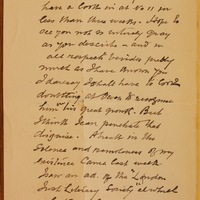 have a tooth in at No 11 in
less than three weeks. Hope to
see you not as entirely gray
as you describe – and in
all respects besides pretty
much as I have known you
I daresay I shall have to
doubting at & recognise
him his great work. But
I think I can penetrate that
disguise. A break in the
silence and remoteness of my
existence came last week.
I saw an ad. of the "London
Literary Society" at which